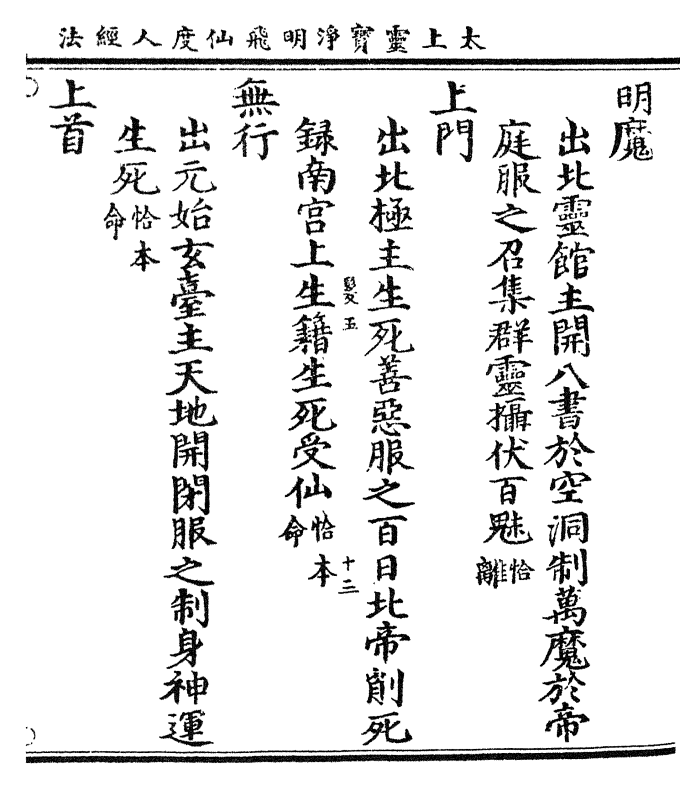 太上靈寶淨明飛仙度人經法
明魔
出北靈館主開八書於空洞制萬魔於帝
庭服之召集群靈攝伏百魅恰離
上門
出北極主生死善惡服之百日北帝削死
髮五
十三
録南宮上生籍生死受仙恰本命
無行
出元始玄臺主天地開閉服之制身神運
生死恰本命
上首